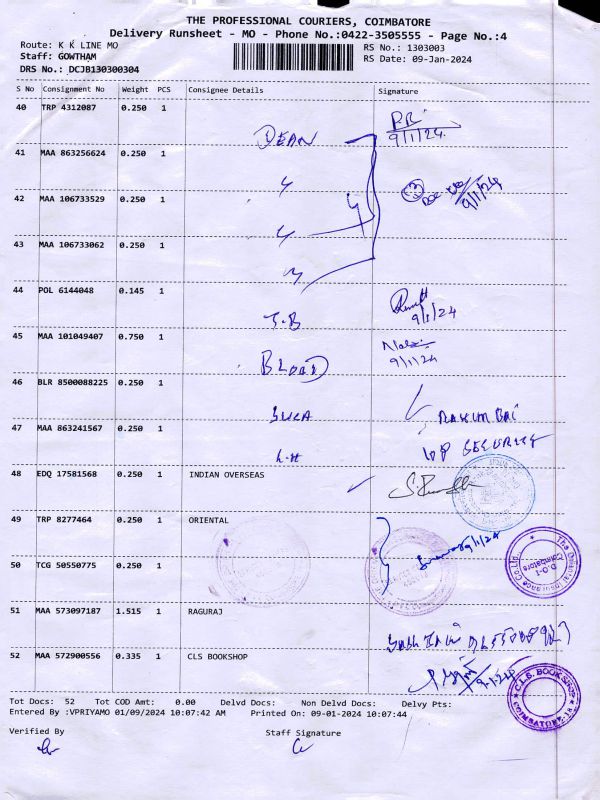 THE PROFESSIONAL COURIERS, COIMBATORE
Delivery Runsheet - MO - Phone No.:0422-3505555 - Page No.:4
Route: K K LINE MO
RS No.: 1303003
Staff: GOWTHAM
RS Date: 09-Jan-2024
DRS No.: DCJB130300304
S No Consignment No Weight PCS Consignee Details Signature
40 TRP 4312087 0.250 1
DEAN
9/1/24.
41 MAA 863256624 0.250 1
42 MAA 106733529 0.250 1
9/1/24
43 MAA 106733062 0.250 1
44 POL 6144048 0.145 1
9/1/24
45 MAA 101049407 0.750 1
9/1/24
BLOOD
46 BLR 8500088225 0.250 1
47 MAA 863241567 0.250 1
SECURITY
48 EDQ 17581568 0.250 1 INDIAN OVERSEAS
49 TRP 8277464 0.250 1 ORIENTAL
9/1/24
50 TCG 50550775 0.250 1
The Oriental Insurance Co. Ltd.
D.O-1
Coimbatore
51 MAA 573097187 1.515 1 RAGURAJ
52 MAA 572900556 0.335 1 CLS BOOKSHOP
C.L.S. BOOK SHOP
COIMBATORE-18
Tot Docs: 52 Tot COD Amt: 0.00 Delvd Docs: Non Delvd Docs: Delvy Pts:
Entered By :VPRIYAMO 01/09/2024 10:07:42 AM Printed On: 09-01-2024 10:07:44
Verified By Staff Signature